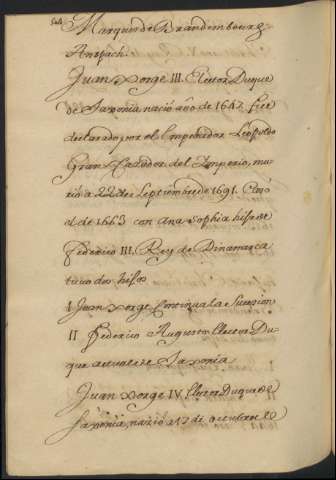 Marques de Brandembourg
Anspach.
Juan Xorge III. Elector Duque
de Saxonia nació año de 1647. fue
declarado por el Emperador Leopoldo
Gran Cazador del Imperio, mu
rió a 22 de Septiembre de 1691. Casó
el de 1663 con Ana Sophia hija de
Federico III. Rey de Dinamarca
tuvo dos hijos
I Juan Xorge continua la Sucesion
II Federico Augusto Elector Du
que actual de Saxonia
Juan Xorge IV. Elector Duque de
Saxonia, nació a 17 de octubre de